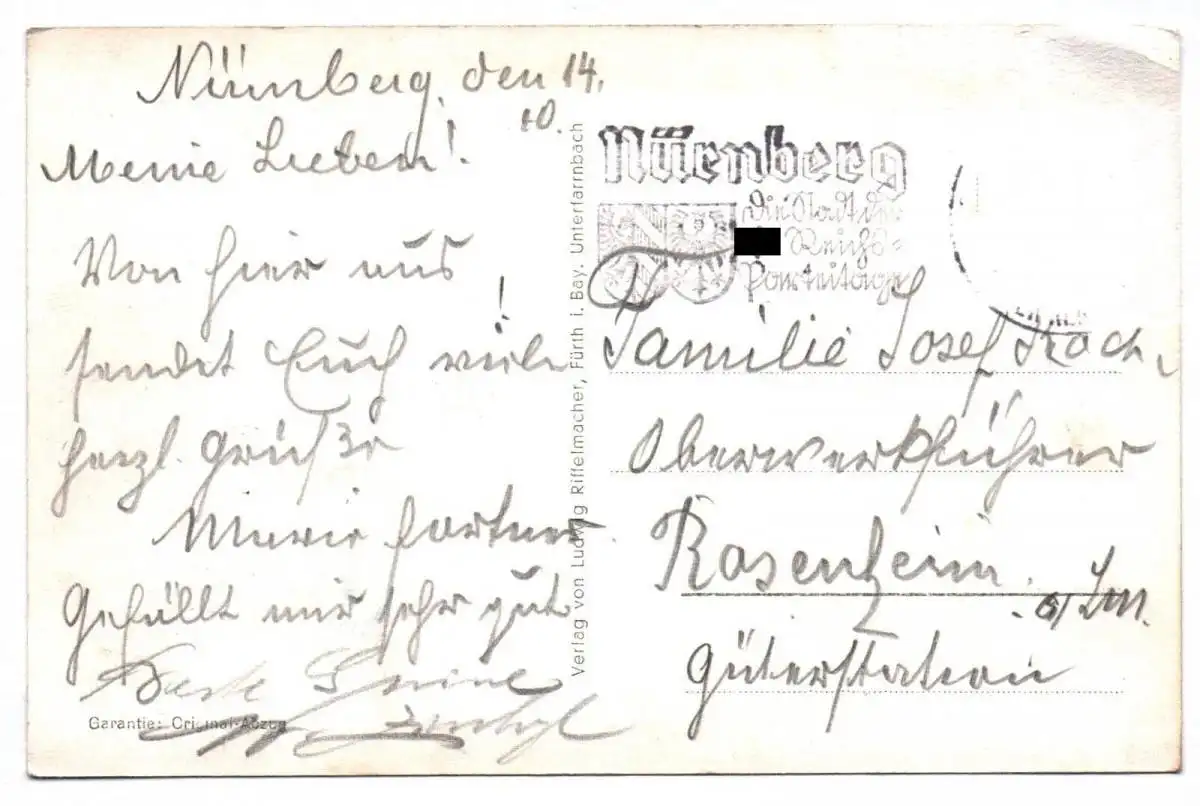 Nürnberg, den 14.
10.
Meine Lieben!
Von hier aus
sendet Euch viele
herzl. Grüße
Marie
Gefällt mir sehr gut
Garantie: Original-Abzug
Verlag von Ludwig Riffelmacher, Fürth i. Bay. Unterfarrnbach
Nürnberg
die Stadt der
Reichs-
parteitage
Familie Josef Koch,
Oberwerkführer
Rosenheim
Güterstation